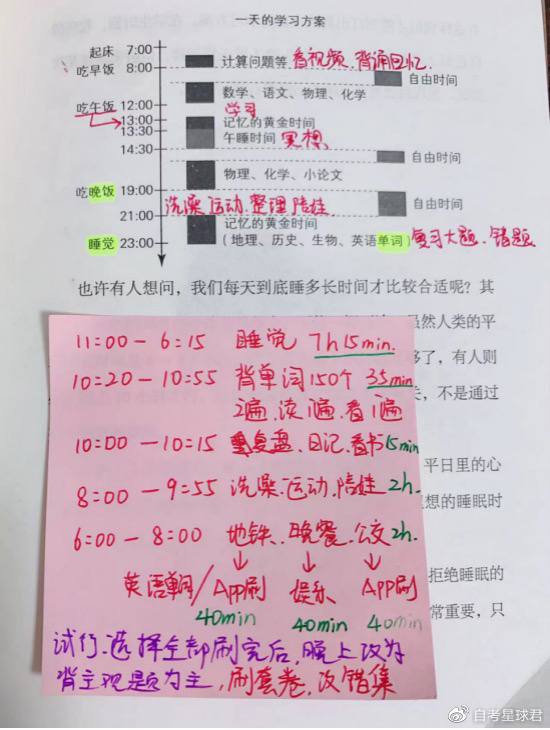 一天的学习方案
起床 7:00
吃早饭 8:00
计算问题等 看视频、背诵回忆
自由时间
数学、语文、物理、化学
吃午饭 12:00
学习
13:00
记忆的黄金时间
13:30
午睡时间 冥想
14:30
自由时间
物理、化学、小论文
吃晚饭 19:00
洗澡、运动、整理、陪娃
自由时间
21:00
记忆的黄金时间
睡觉 23:00
(地理、历史、生物、英语单词) 复习大题、错题
也许有人想问,我们每天到底睡多长时间才比较合适呢?其
虽然人类的平
够了,有人则
天,不是通过
平日里的心
想的睡眠时
拒绝睡眠的
常重要,只
11:00 - 6:15 睡觉 7h 15min.
10:20 - 10:55 背单词150个 35min
2遍、读1遍、看1遍
10:00 - 10:15 复盘、日记、看书 15min
8:00 - 9:55 洗澡、运动、陪娃 2h.
6:00 - 8:00 地铁、晚餐、公交 2h.
英语单词/App刷 娱乐 App刷
40min 40min 40min
试行、选择全部刷完后,晚上改为
背主观题为主,刷套卷,改错集
@自考星球君